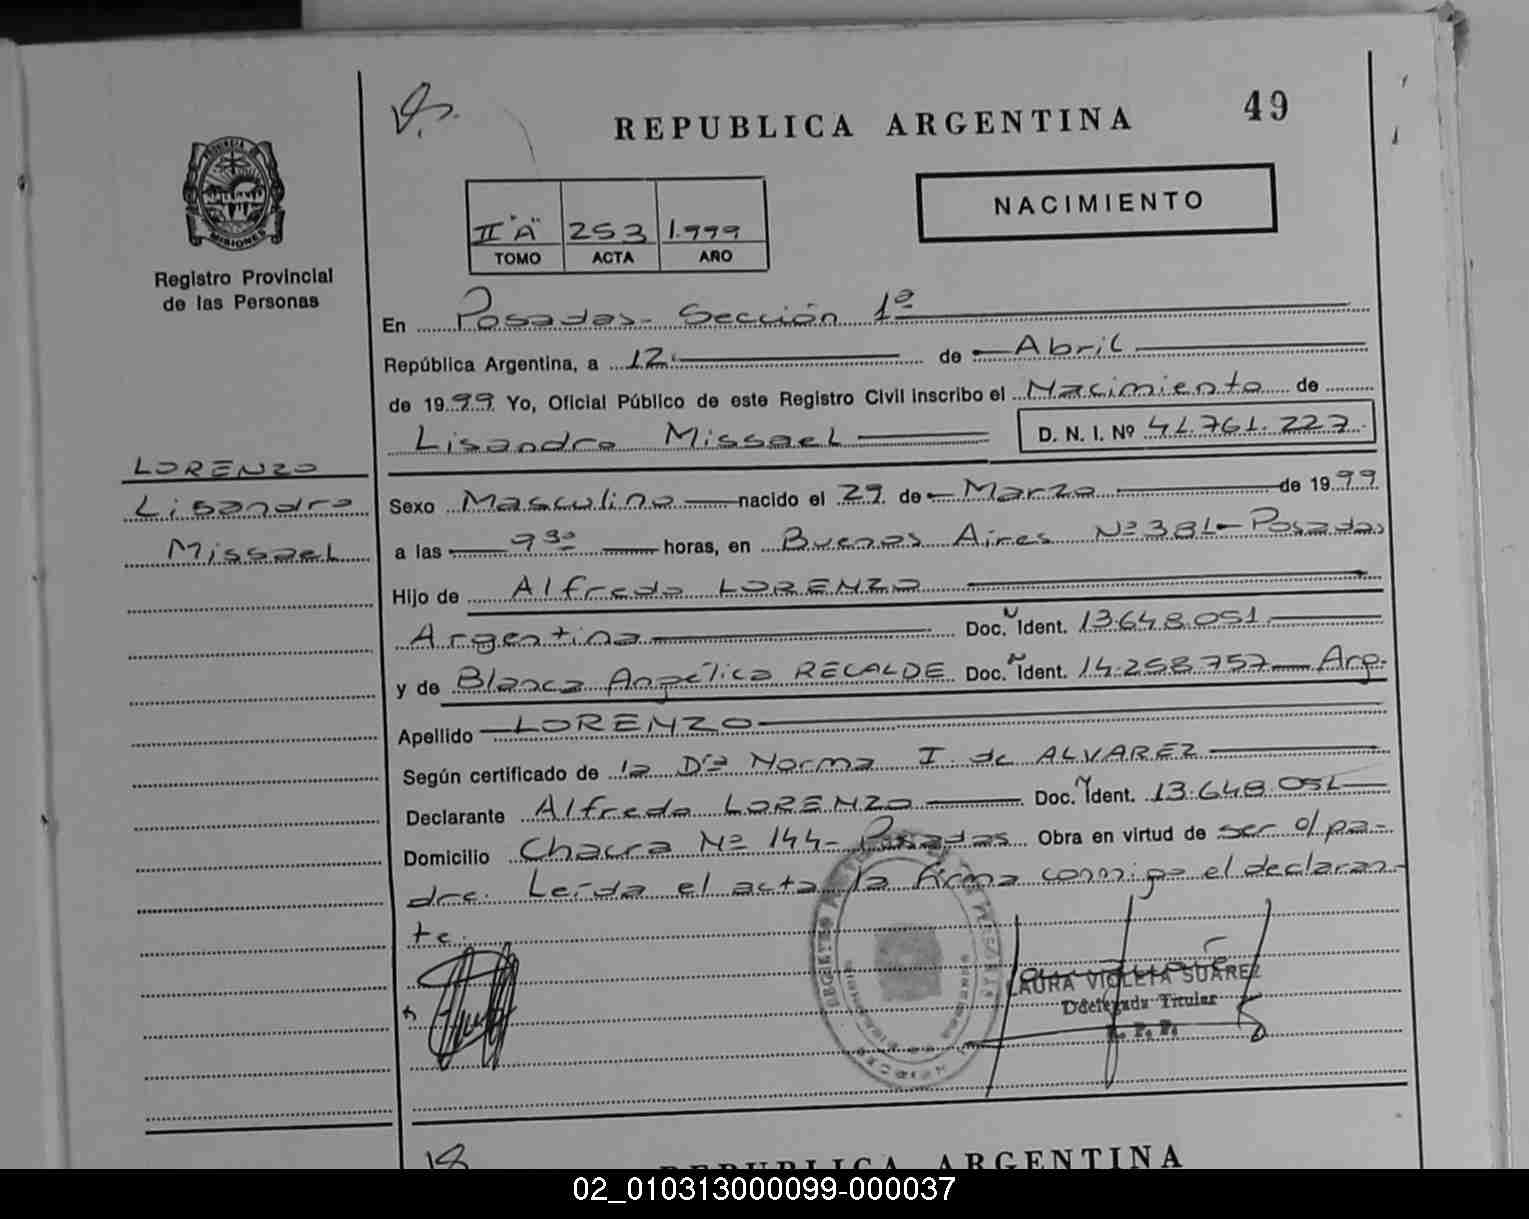 REPUBLICA ARGENTINA
49
PROVINCIA DE
MISIONES
Registro Provincial
de las Personas
II "A" 253 1.999
TOMO ACTA AÑO
NACIMIENTO
En Posadas - Sección 1ª
República Argentina, a 12 de Abril
de 1999 Yo, Oficial Público de este Registro Civil inscribo el Nacimiento de
Lisandro Missael D. N. I. Nº 41.761.227
LORENZO
Lisandro
Missael
Sexo Masculino nacido el 29 de Marzo de 1999
a las 9 30 horas, en Buenos Aires Nº 381- Posadas
Hijo de Alfredo LORENZO
Argentina Doc. N Ident. 13.648.051
y de Blanca Angélica RECALDE Doc. N Ident. 14.258.757 Arg.
Apellido LORENZO
Según certificado de la Dra Norma I. de ALVAREZ
Declarante Alfredo LORENZO Doc. N Ident. 13.648.051
Domicilio Chacra Nº 144- Posadas Obra en virtud de ser el pa-
dre. Leída el acta la firma conmigo el declaran-
te.
LAURA VIOLETA SUAREZ
Delegada Titular
R. P. P.
18
REPUBLICA ARGENTINA
02_010313000099-000037